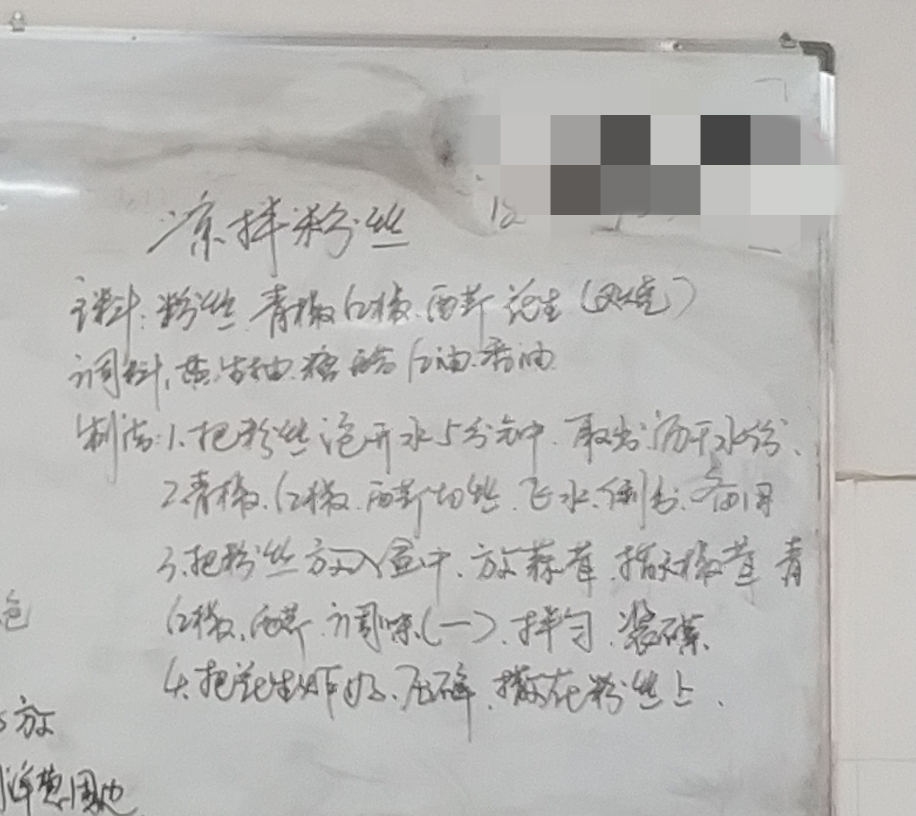 凉拌粉丝
主料:粉丝.青椒.红椒.西芹.花生(
调料:盐.生抽.糖.醋.红油.香油
制法:1.把粉丝泡开水5分钟中.取出沥干水份、
2.青椒.红椒.西芹切丝.飞水.倒出.备用
3.把粉丝放入盆中.放蒜茸.指天椒茸 青
红椒.西芹.调味(一).拌匀.装碟.
4.把花生炸好.压碎.撒在粉丝上.
色
放